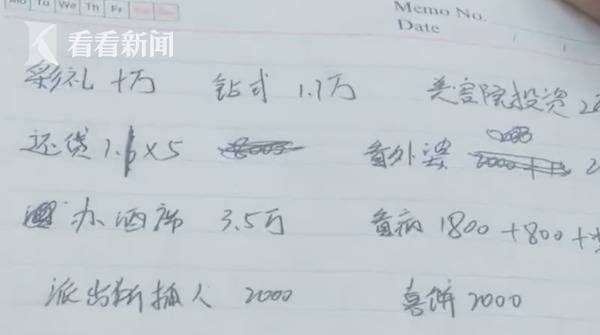 Mo Tu We Th Fr
Memo No.
Date
看看新闻
彩礼 十万 钻式 1.7万 美容院投资 2
还贷 1. ×5 看外婆 2000
办酒席 3.5万 看病 1800+800+
派出所抓人 2000 喜饼 2000